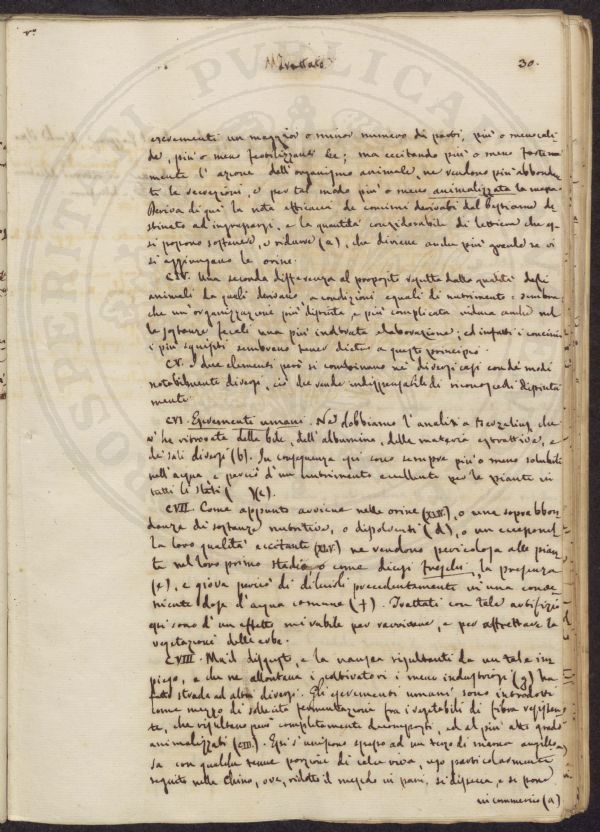 Trattato 30.
escrementi un maggior o minor numero di parti, più o meno cali
de, più o meno fertilizzanti be; ma eccitando più o meno fortem
mente l'azione dell'organismo animale, ne rendono più abbonda
te le secrezioni, e per tal modo più o meno animalizzata la
Deriva di qui la nota efficacia de concimi derivati dal bestiame de
stinato ad ingrassarsi, e la quantità considerabile di lettiera che e
si possono sostenere, o ridurre (a), che diviene anche più grande se vi
si aggiungano le orine.
CIV. Una seconda differenza al proposito risulta dalla qualità degli
animali da quali derivano, a condizioni eguali di nutrimento: sembra
che un'organizzazione più distinta, e più complicata induca anche nel
le sostanze fecali una più inoltrata elaborazione; ed infatti i concimi
i più squisiti sembrano tener dietro a questo principio.
CV. I due elementi però si combinano ne' diversi casi con de' modi
notabilmente diversi, ciò che rende indispensabile di riconoscerli distinta
mente.
CVI. Escrementi umani. Ne dobbiamo l'analisi a Berzelius che
vi ha ritrovato della bile, dell'albumina, della materia estrattiva, e
de' sali diversi (b). In conseguenza essi sono sempre più o meno solubili
nell'acqua, e perciò d'un nutrimento eccellente per le piante in
tutti li stati ( )(c).
CVII. Come appunto avviene nelle orine (XLIV.), o una soprabbon
danza di sostanze nutritive, o dissolventi (d), o un eccesso nel
la loro qualità eccitante (XLV.) ne rendono pericolosa alle pian
te nel loro primo stadio, o come dicesi freschi, la presenza
(e), e giova perciò di diluirli precedentemente in una conve
niente dose d'acqua comune (f). Trattati con tale artifizio
essi sono d'un effetto mirabile per ravvivare, e per affrettare la
vegetazione delle erbe.
CVIII. Ma il disgusto, e la nausea risultanti da un tale im
piego, e che ne allontana i coltivatori i meno industriosi (g) ha
fatto strada ad altri diversi. Gli escrementi umani sono introdotti
come mezzo di sollecita fermentazione fra i vegetabili di fibra resisten
te, che risultano però completamente decomposti, ed al più alto grado
animalizzati (CIII.). Essi s'uniscono spesso ad un terzo di marna argillo
sa con qualche tenue porzione di calce viva, uso particolarmente
seguito nella China, ove, ridotto il miscuglio in pani, si disecca, e si pone
in commercio (a)